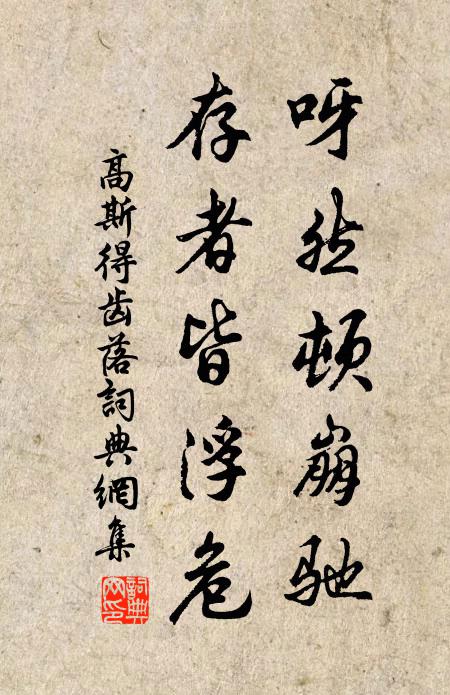 呀然頓崩馳
存者皆浮危
高斯得齿落詞典網集
詞典網印